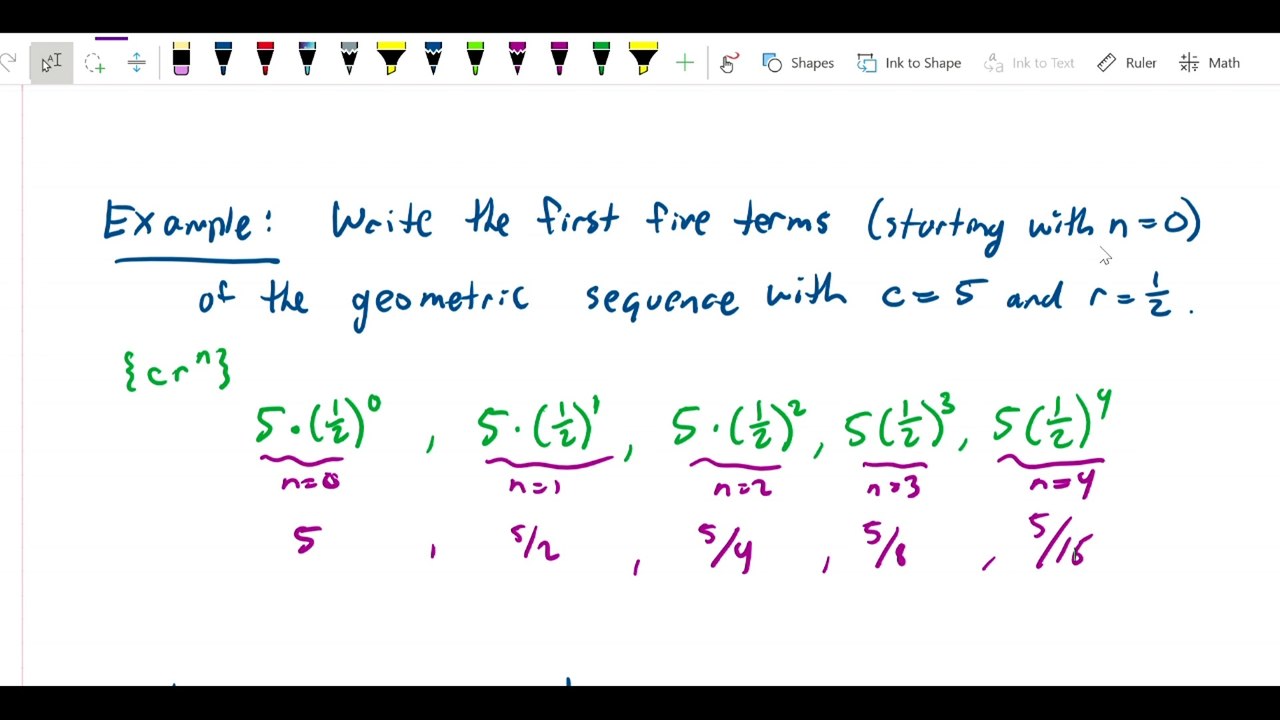 Shapes Ink to Shape Ink to Text Ruler Math
Example: Write the first five terms (starting with n=0)
of the geometric sequence with c=5 and r=1/2.
{cr^n}
5·(1/2)^0, 5·(1/2)^1, 5·(1/2)^2, 5(1/2)^3, 5(1/2)^4
n=0 n=1 n=2 n=3 n=4
5, 5/2, 5/4, 5/8, 5/16